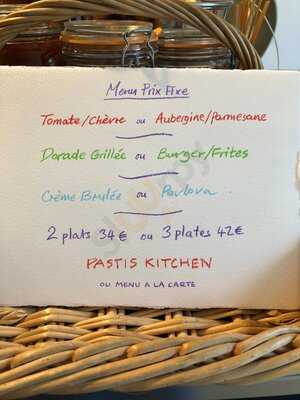 Menu Prix Fixe
Tomate/Chèvre ou Aubergine/Parmesane
Dorade Grillée ou Burger/Frites
Crème Brulée ou Pavlova
2 plats 34€ ou 3 plates 42€
PASTIS KITCHEN
OU MENU A LA CARTE